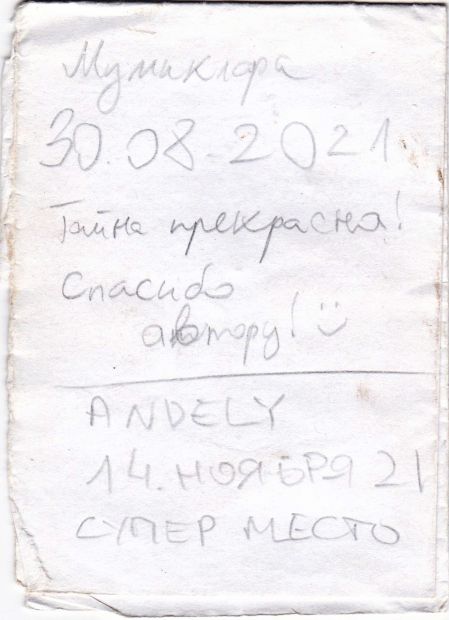 Мумиклора
30.08.2021
Тайна прекрасна!
Спасибо
автору! :)
ANDELY
14. НОЯБРЯ 21
СУПЕР МЕСТО